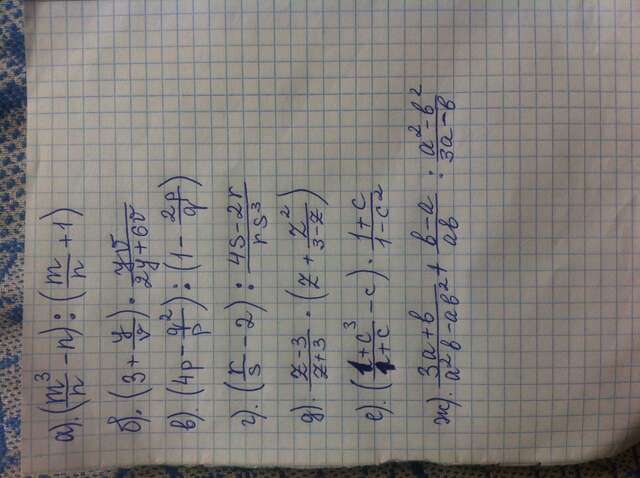 а). (m³/n - n) : (m/n + 1)
б). (3 + y/v) · yv/(2y+6v)
в). (4p - q²/p) : (1 - 2p/q)
г). (r/s - 2) : (4s-2r)/(rs³)
д). (z-3)/(z+3) · (z + z²/(3-z))
е). ((1+c³)/(1+c) - c) · (1+c)/(1-c²)
ж). (3a+b)/(a²b-ab²) + (b-a)/(ab) : (a²-b²)/(3a-b)